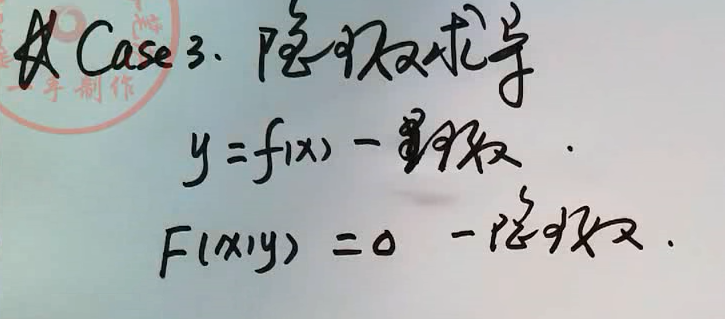 Case 3. 隐函数求导
y = f(x) - 显函数.
F(x,y) = 0 - 隐函数.
制作